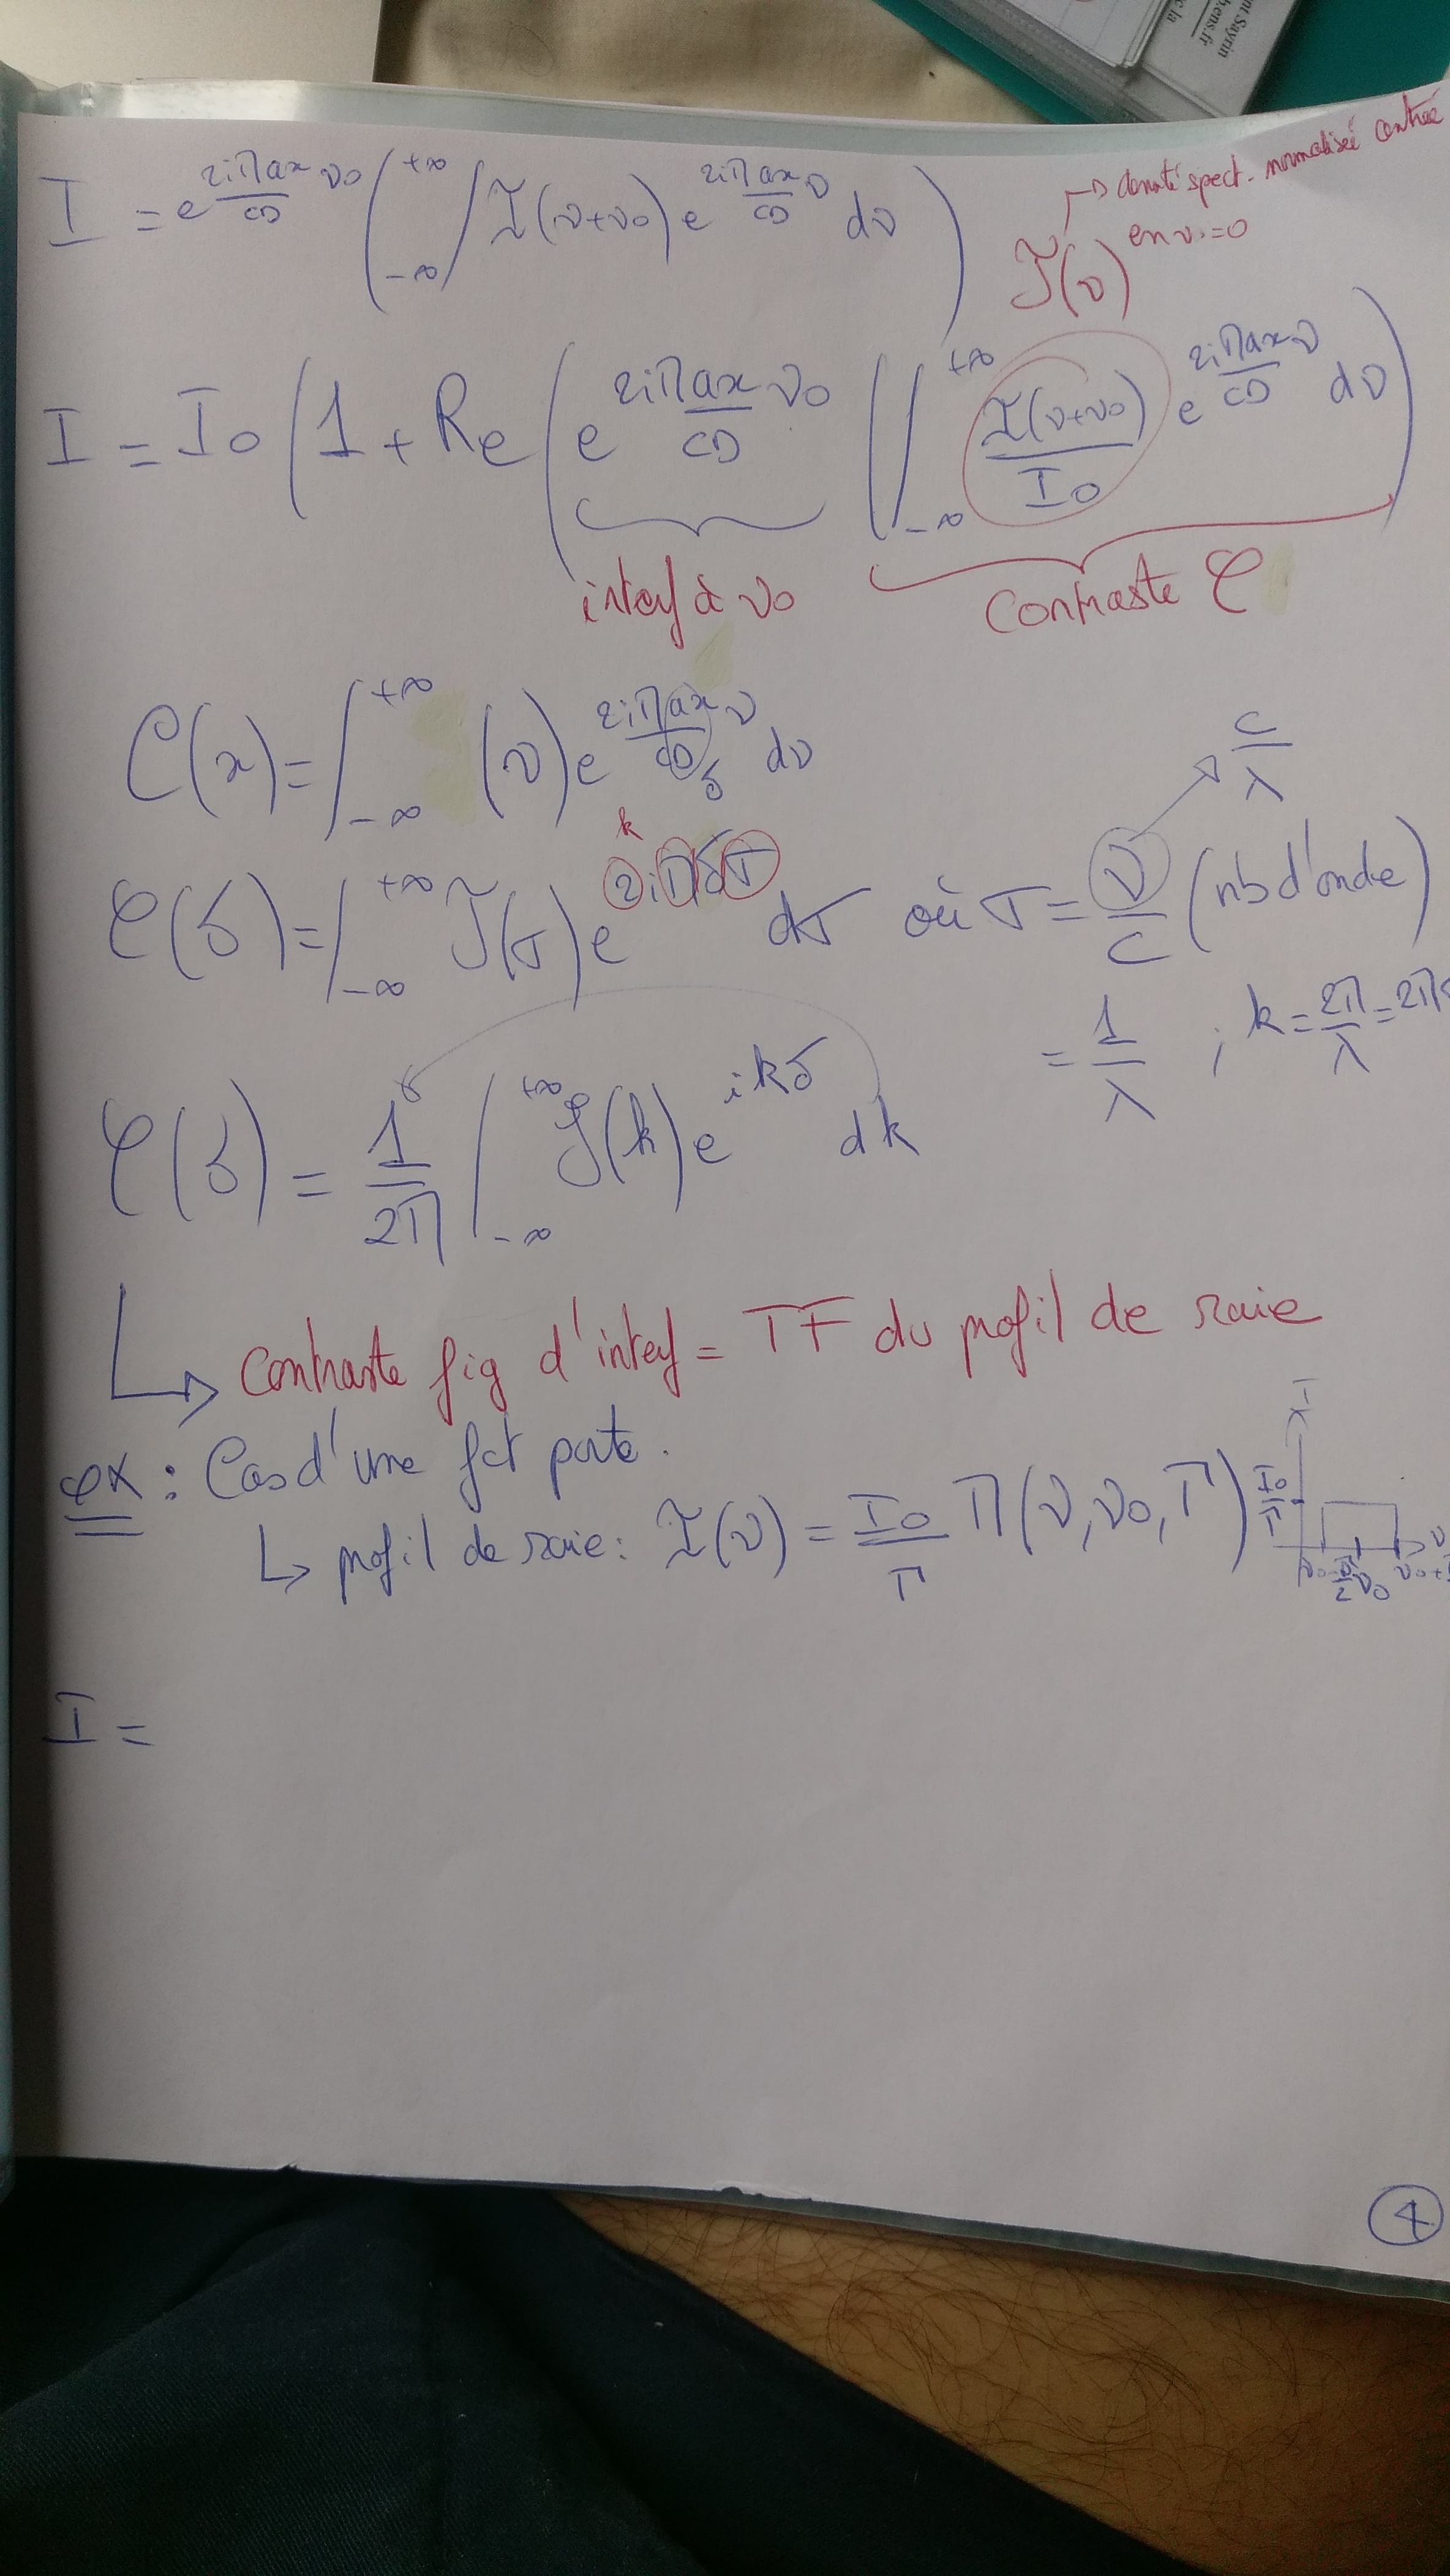 nt Sayrin
h.ens.fr
c la
I = e^{2iΠ ax/cD ν0} ( ∫_{-∞}^{+∞} Ĩ(ν+ν0) e^{2iΠ ax/cD ν} dν )
→ densité spect. normalisée centrée
en ν0=0
J̃(ν)
I = I0 ( 1 + Re ( e^{2iΠ ax/cD ν0} ( ∫_{-∞}^{+∞} Ĩ(ν+ν0)/I0 e^{2iΠ ax/cD ν} dν )
interf à ν0
Contraste C
C(x) = ∫_{-∞}^{+∞} (ν) e^{2iΠ ax/cD ν} dν
δ
c/λ
k
C(δ) = ∫_{-∞}^{+∞} J̃(σ) e^{2iΠδσ} dσ où σ = ν/c (nb d'onde)
= 1/λ ; k = 2Π/λ = 2Π
C(δ) = 1/2Π ∫_{-∞}^{+∞} J̃(k) e^{ikδ} dk
↳ Contraste fig d'interf = TF du profil de raie
ex : Cas d'une fct porte.
↳ profil de raie : Ĩ(ν) = I0/Γ Π(ν, ν0, Γ)
I
I0/Γ
ν
ν0-Γ/2 ν0 ν0+
I =
4